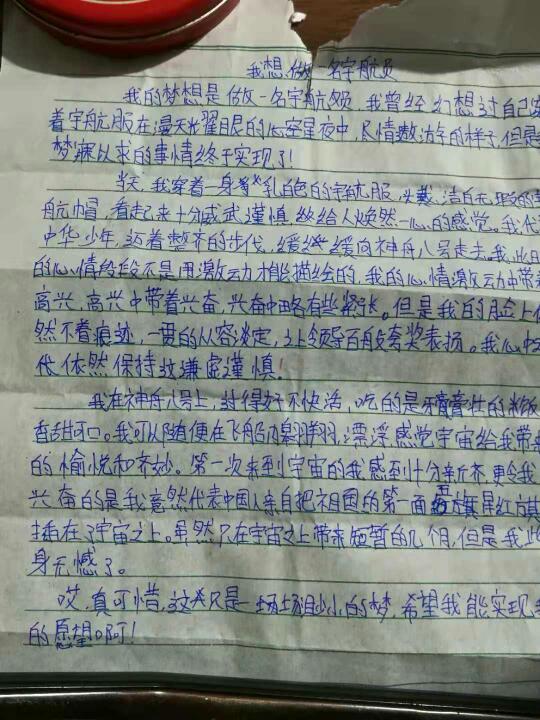 我想做一名宇航员
我的梦想是做一名宇航员,我曾经幻想过自己穿
着宇航服在漫天光耀眼的心空星夜中,尽情数访年的样子,但是
梦寐以求的事情终于实现了!
当天,我穿着一身乳白色的宇航服,头戴洁白无瑕的宇
航帽,看起来十分威武谨慎,终给人焕然一心的感觉。我代
中华少年,迈着整齐的步伐,缓缓向神舟八号走去。我此时
的心情段段不是用激动才能描绘的,我的心情激动中带着
高兴,高兴中带着兴奋,兴奋中略有些紧张。但是我的脸上依
然不着痕迹,一贯的从容淡定,让领导百般夸奖表扬。我心中
依然保持故谦虚谨慎!
我在神舟八号上,过得好不快活,吃的是牙膏壮的米饭
香甜可口。我可以随便在飞船内翱翔,漂浮感觉宇宙给我带来
的愉悦和奇妙。第一次来到宇宙的我感到十分新奇,更令我
兴奋的是我竟然代表中国人亲自把祖国的第一面五星红旗
插在了宇宙之上。虽然只在宇宙之上带来短暂的几个月,但是我此
身无憾了。
哎,真可惜,这只是一场小小的梦,希望我能实现
的愿望啊!